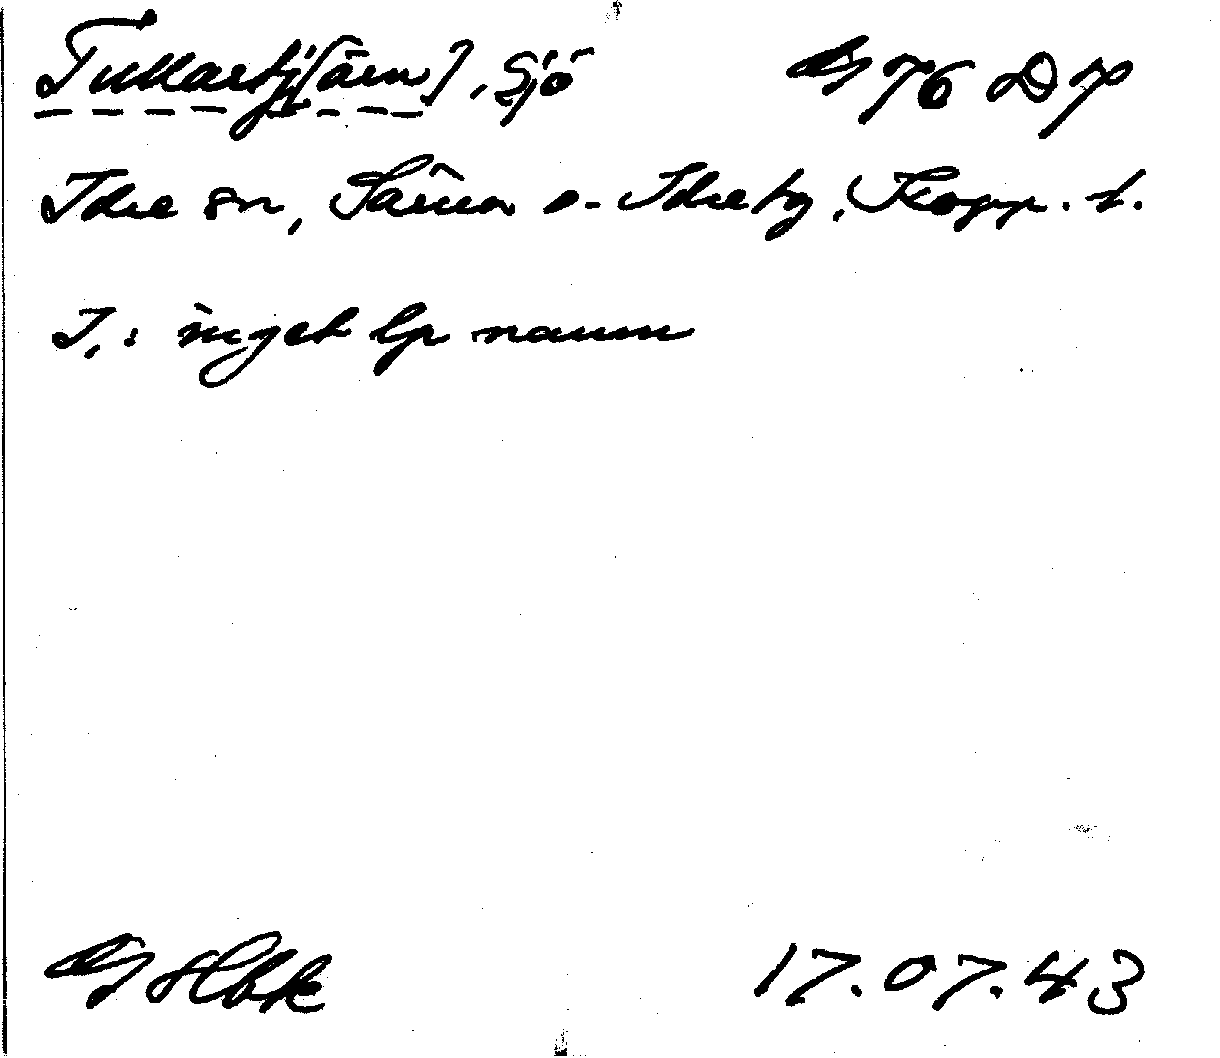 Tukartj[ärn], Sjö G 76 D p
Idre sn, Särna o. Idre tg, Kopp. l.
I.: inget lp namn
17.07.43